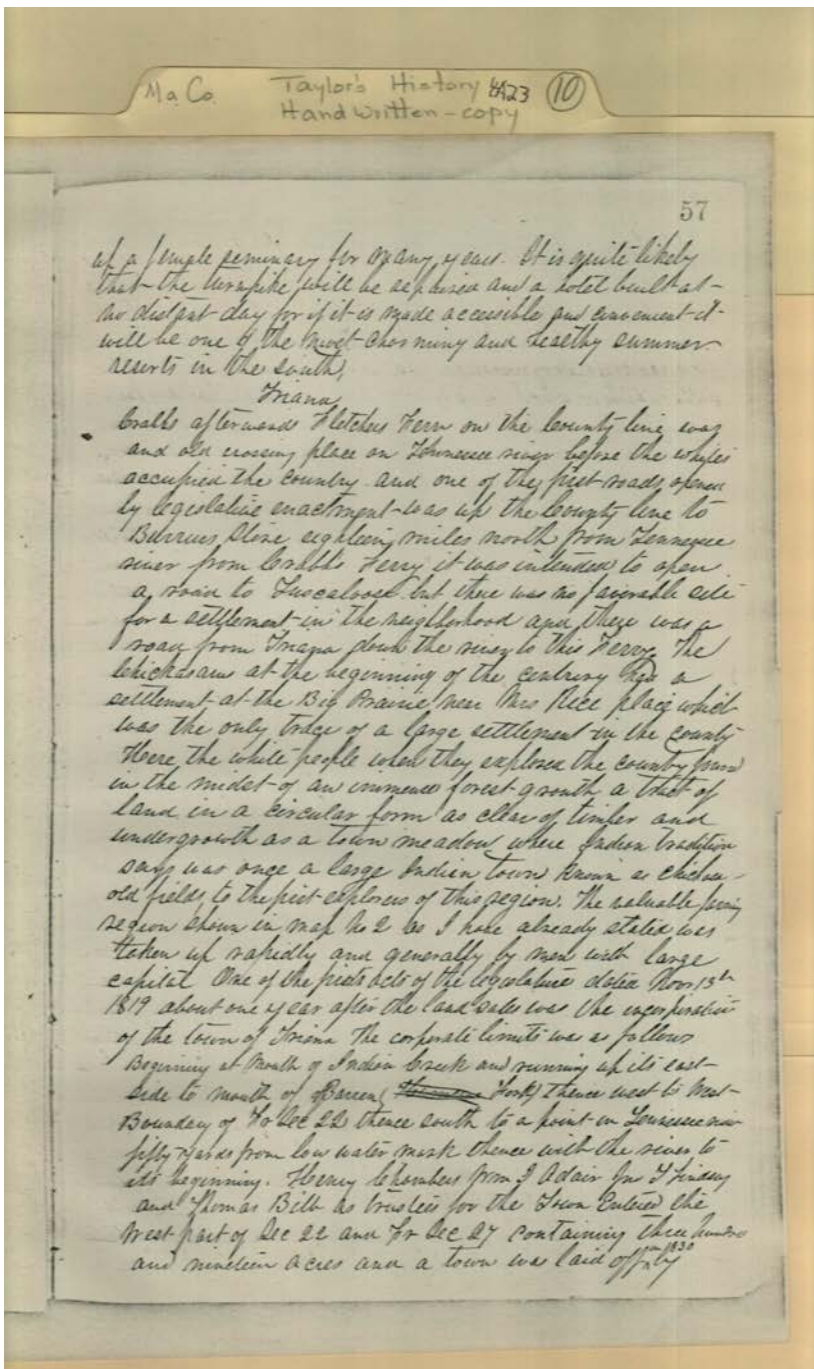 Ma. Co. Taylor's History 4A23 10
Handwritten - copy
57
of a female seminary for many years. It is quite likely
that the turnpike will be repaired and a hotel built at
no distant day for if it is made accessible and convenient it
will be one of the most charming and healthy summer
resorts in the South.
Triana
Crabbs afterwards Fletchers Ferry on the County line was
and old crossing place on Tennessee river before the whites
occupied the country and one of the first roads opened
by legislative enactment was up the County line to
Store eighteen miles north from Tennessee
river from Crabbs Ferry it was intended to open
a road to Tuscaloosa but there was no favorable site
for a settlement in the neighborhood and there was a
road from Triana down the river to this Ferry. The
Chickasaws at the beginning of the century had a
settlement at the Big Prairie near Mrs Rice place which
was the only trace of a large settlement in the county
Here the white people when they explored the county found
in the midst of an immense forest growth a tract of
land in a circular form as clear of timber and
undergrowth as a town meadow where Indian tradition
says was once a large Indian town known as
old fields to the first explorers of this region. The valuable
region shown in map No 2 as I have already stated was
taken up rapidly and generally by men with large
capital One of the firsts acts of the legislature dated Novr 13th
1819 about one year after the land sales was the incorporation
of the town of Triana The corporate limits was as follows
Beginning at Mouth of Indian Creek and running up its east
side to mouth of Barren Fork thence west to West
Boundary of Fr Sec 22 thence south to a point in Tennessee river
fifty yards from low water mark thence with the river to
its beginning. Henry Chambers J Adair
and Thomas Bibb as trustees for the Town Entered the
West part of Sec 22 and Fr Sec 27 containing three hundred
and nineteen acres and a town was laid off by